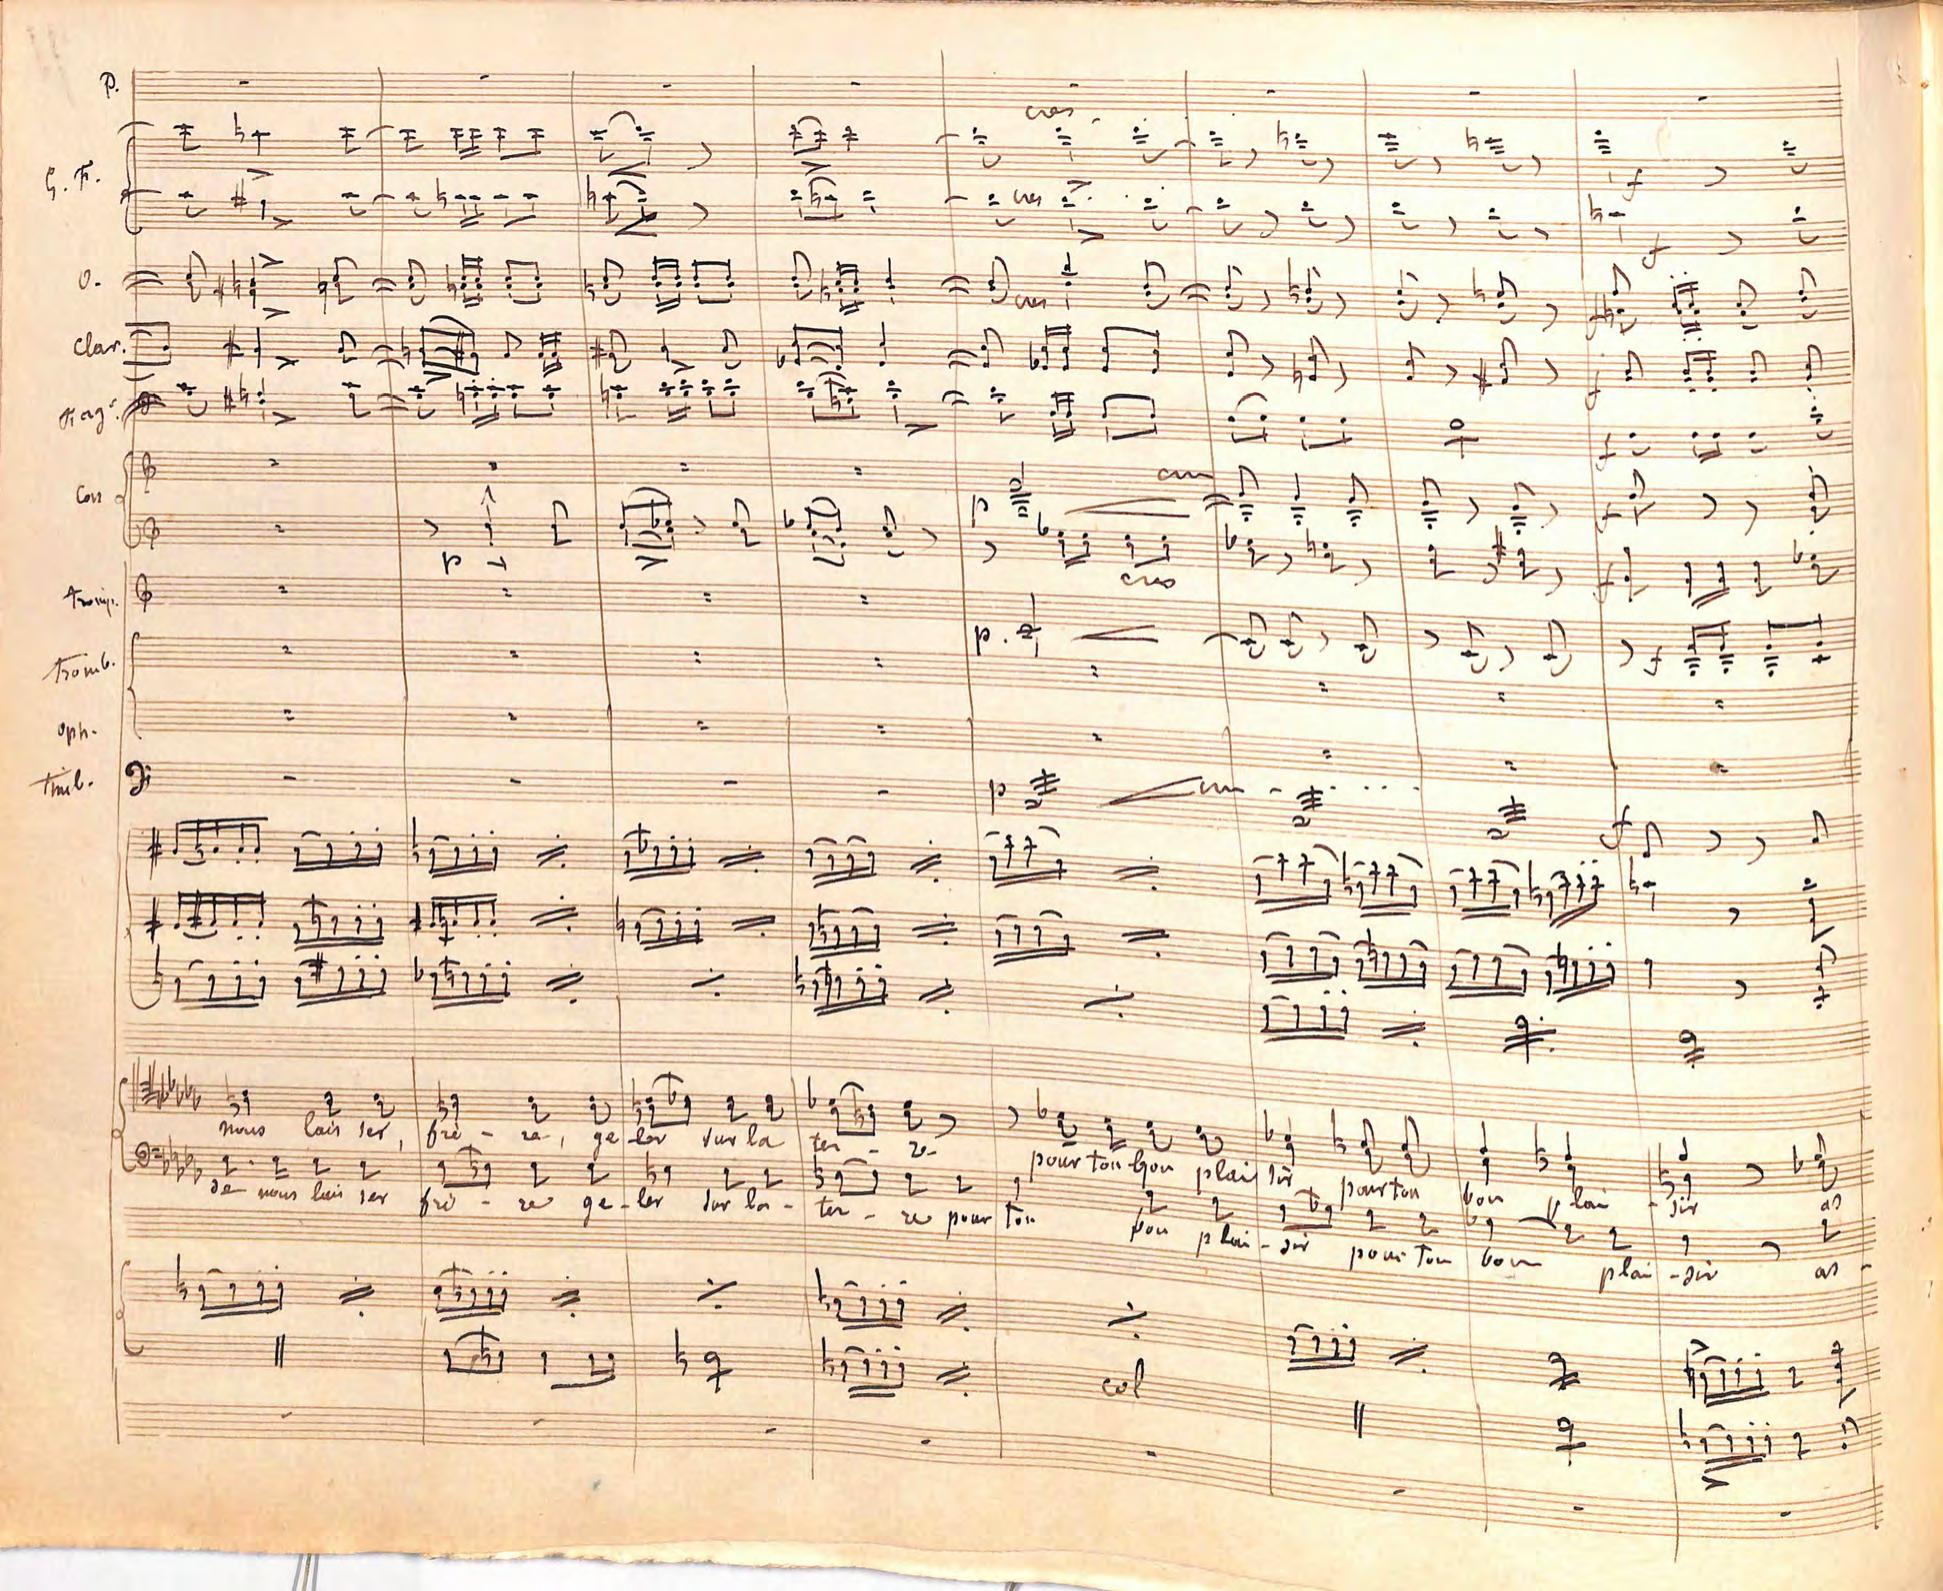 P.
cres.
G. F.
cres
O.
cres
Clar.
f
Cor
p
p
cres
Tromp.
p.
f
Tromb.
Oph.
Timb.
p
f
nous lais ser, frè - re, ge - ler sur la ter - re pour ton bon plai sir pour ton bon plai - sir as
de nous lais ser frè - re ge - ler sur la - ter - re pour ton bon plai - sir pour ton bon plai - sir as -
col